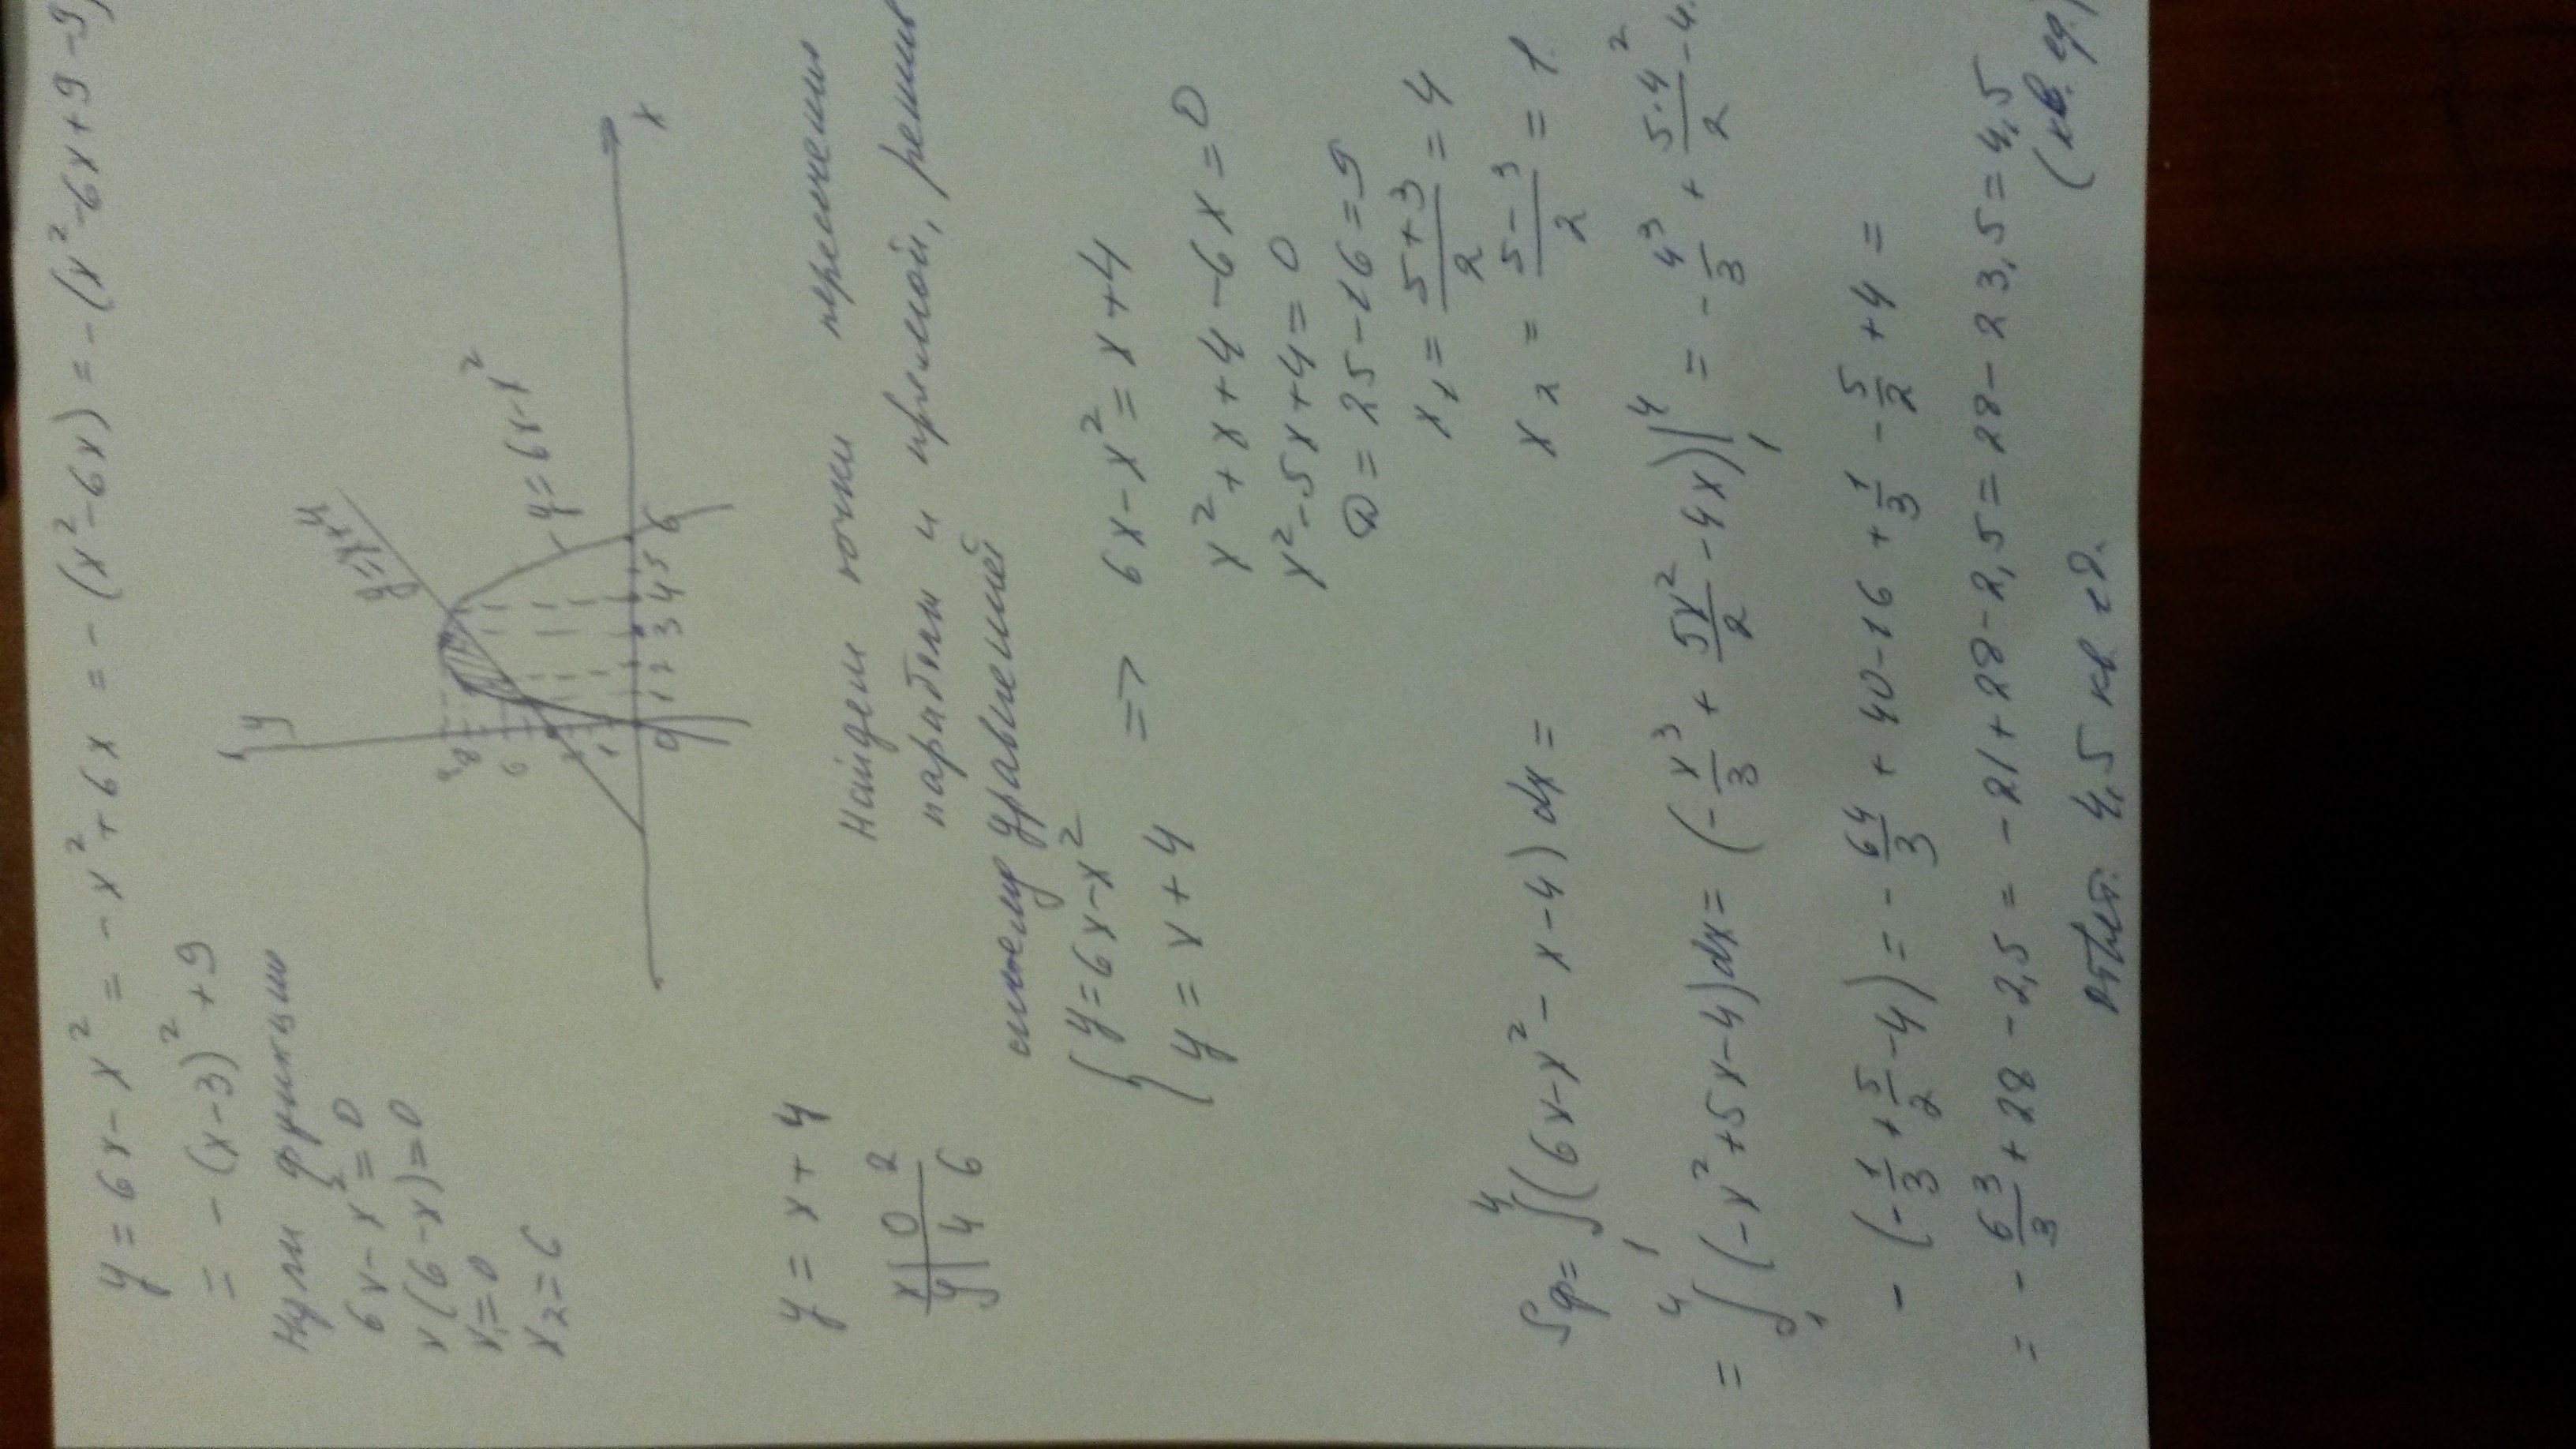 y = 6x - x² = -x² + 6x = -(x² - 6x) = -(x² - 6x + 9 - 9)
= -(x - 3)² + 9
Нули функции
6x - x² = 0
x(6 - x) = 0
x₁ = 0
x₂ = 6
y
y = x + 4
y = 6x - x²
9
8
6
1
0 1 2 3 4 5 6
x
y = x + 4
x | 0 2
y | 4 6
Найдем точки пересечения
параболы и прямой, решив
систему уравнений
{ y = 6x - x²
{ y = x + 4
=> 6x - x² = x + 4
x² + x + 4 - 6x = 0
x² - 5x + 4 = 0
D = 25 - 16 = 9
x₁ = (5 + 3)/2 = 4
x₂ = (5 - 3)/2 = 1
Sф = ∫₁⁴ (6x - x² - x - 4) dx =
= ∫₁⁴ (-x² + 5x - 4) dx = (-x³/3 + 5x²/2 - 4x) |₁⁴ = -4³/3 + 5·4²/2 - 4·
- (-1/3 + 5/2 - 4) = -64/3 + 40 - 16 + 1/3 - 5/2 + 4 =
= -63/3 + 28 - 2,5 = -21 + 28 - 2,5 = 28 - 23,5 = 4,5
(кв. ед.)
Ответ: 4,5 кв. ед.